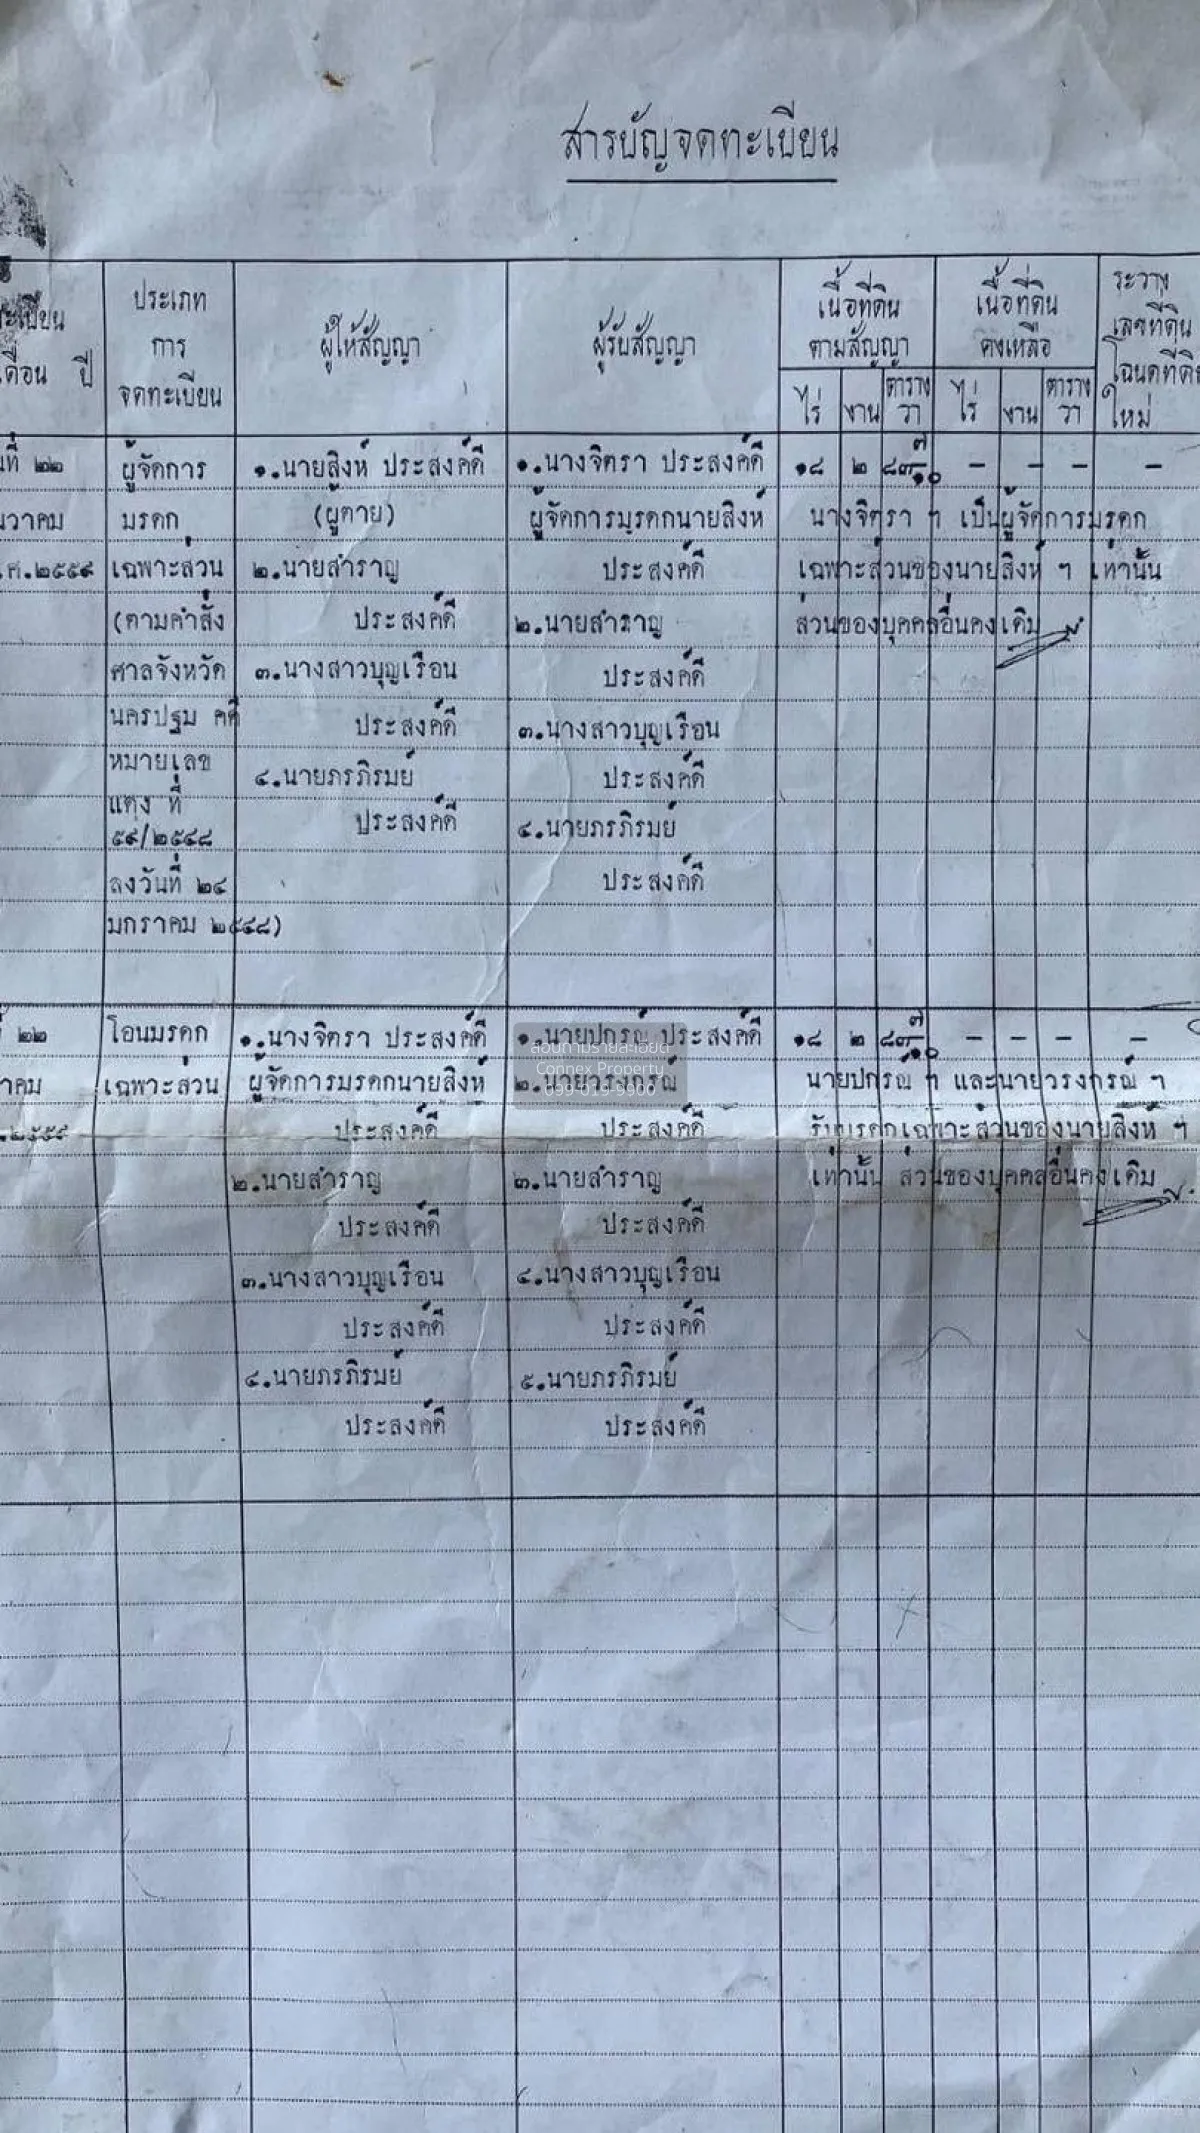 สารบัญจดทะเบียน
ประเภท
การ
จดทะเบียน
ผู้ให้สัญญา
ผู้รับสัญญา
เนื้อที่ดิน
ตามสัญญา
ไร่ งาน ตาราง
วา
เนื้อที่ดิน
คงเหลือ
ไร่ งาน ตาราง
วา
ระวาง
เลขที่ดิน
โฉนดที่ดิน
ใหม่
ะเบียน
ดือน ปี
นที่ ๒๒
นวาคม
.ศ.๒๕๕๙
ผู้จัดการ
มรดก
เฉพาะส่วน
(ตามคำสั่ง
ศาลจังหวัด
นครปฐม คดี
หมายเลข
แดง ที่
๕๙/๒๕๔๘
ลงวันที่ ๒๔
มกราคม ๒๕๔๘)
๑.นายสิงห์ ประสงค์ดี
(ผู้ตาย)
๒.นายสำราญ
ประสงค์ดี
๓.นางสาวบุญเรือน
ประสงค์ดี
๔.นายภรภิรมย์
ประสงค์ดี
๑.นางจิตรา ประสงค์ดี
ผู้จัดการมรดกนายสิงห์
ประสงค์ดี
๒.นายสำราญ
ประสงค์ดี
๓.นางสาวบุญเรือน
ประสงค์ดี
๔.นายภรภิรมย์
ประสงค์ดี
๑๘ ๒ ๘๓ ๗/๑๐ – – – –
นางจิตรา ฯ เป็นผู้จัดการมรดก
เฉพาะส่วนของนายสิงห์ ฯ เท่านั้น
ส่วนของบุคคลอื่นคงเดิม
๒๒
าคม
.๒๕๕๙
โอนมรดก
เฉพาะส่วน
๑.นางจิตรา ประสงค์ดี
ผู้จัดการมรดกนายสิงห์
ประสงค์ดี
๒.นายสำราญ
ประสงค์ดี
๓.นางสาวบุญเรือน
ประสงค์ดี
๔.นายภรภิรมย์
ประสงค์ดี
๑.นายปกรณ์ ประสงค์ดี
๒.นายวรงกรณ์
ประสงค์ดี
๓.นายสำราญ
ประสงค์ดี
๔.นางสาวบุญเรือน
ประสงค์ดี
๕.นายภรภิรมย์
ประสงค์ดี
๑๘ ๒ ๘๓ ๗/๑๐ – – – –
นายปกรณ์ ฯ และนายวรงกรณ์ ฯ
รับมรดกเฉพาะส่วนของนายสิงห์ ฯ
เท่านั้น ส่วนของบุคคลอื่นคงเดิม
สอบถามรายละเอียด
Connex Property
099-019-9900